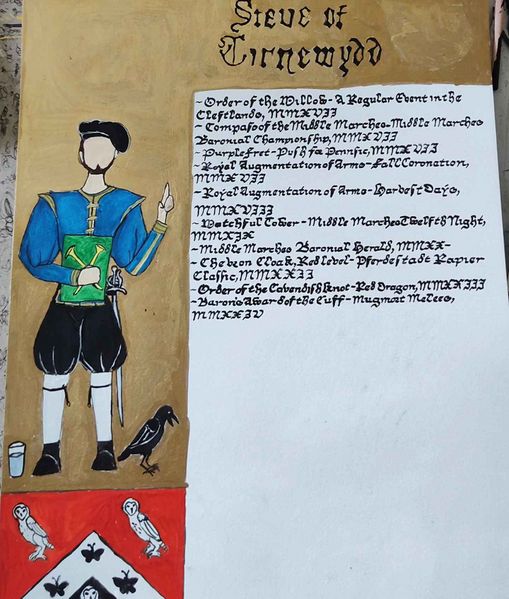 Steve of
Tirnewydd
~Order of the Willow - A Regular Event in the
Cleftlands, MMXVII
~Compass of the Middle Marches-Middle Marches
Baronial Championship, MMXVII
~Purple Fret-Push fa Pennsic, MMXVII
~Royal Augmentation of Arms-Fall Coronation,
MMXVII
~Royal Augmentation of Arms-Harvest Days,
MMXVIII
~Watchful Tower-Middle Marches Twelfth Night,
MMXIX
~Middle Marches Baronial Herald, MMXX-
~Chevron Cloak, Red Level-Pferdestadt Rapier
Classic, MMXXII
~Order of the Cavendish Knot-Red Dragon, MMXXIII
~Baron's Award of the Cuff-Mugmort Melees,
MMXXIV